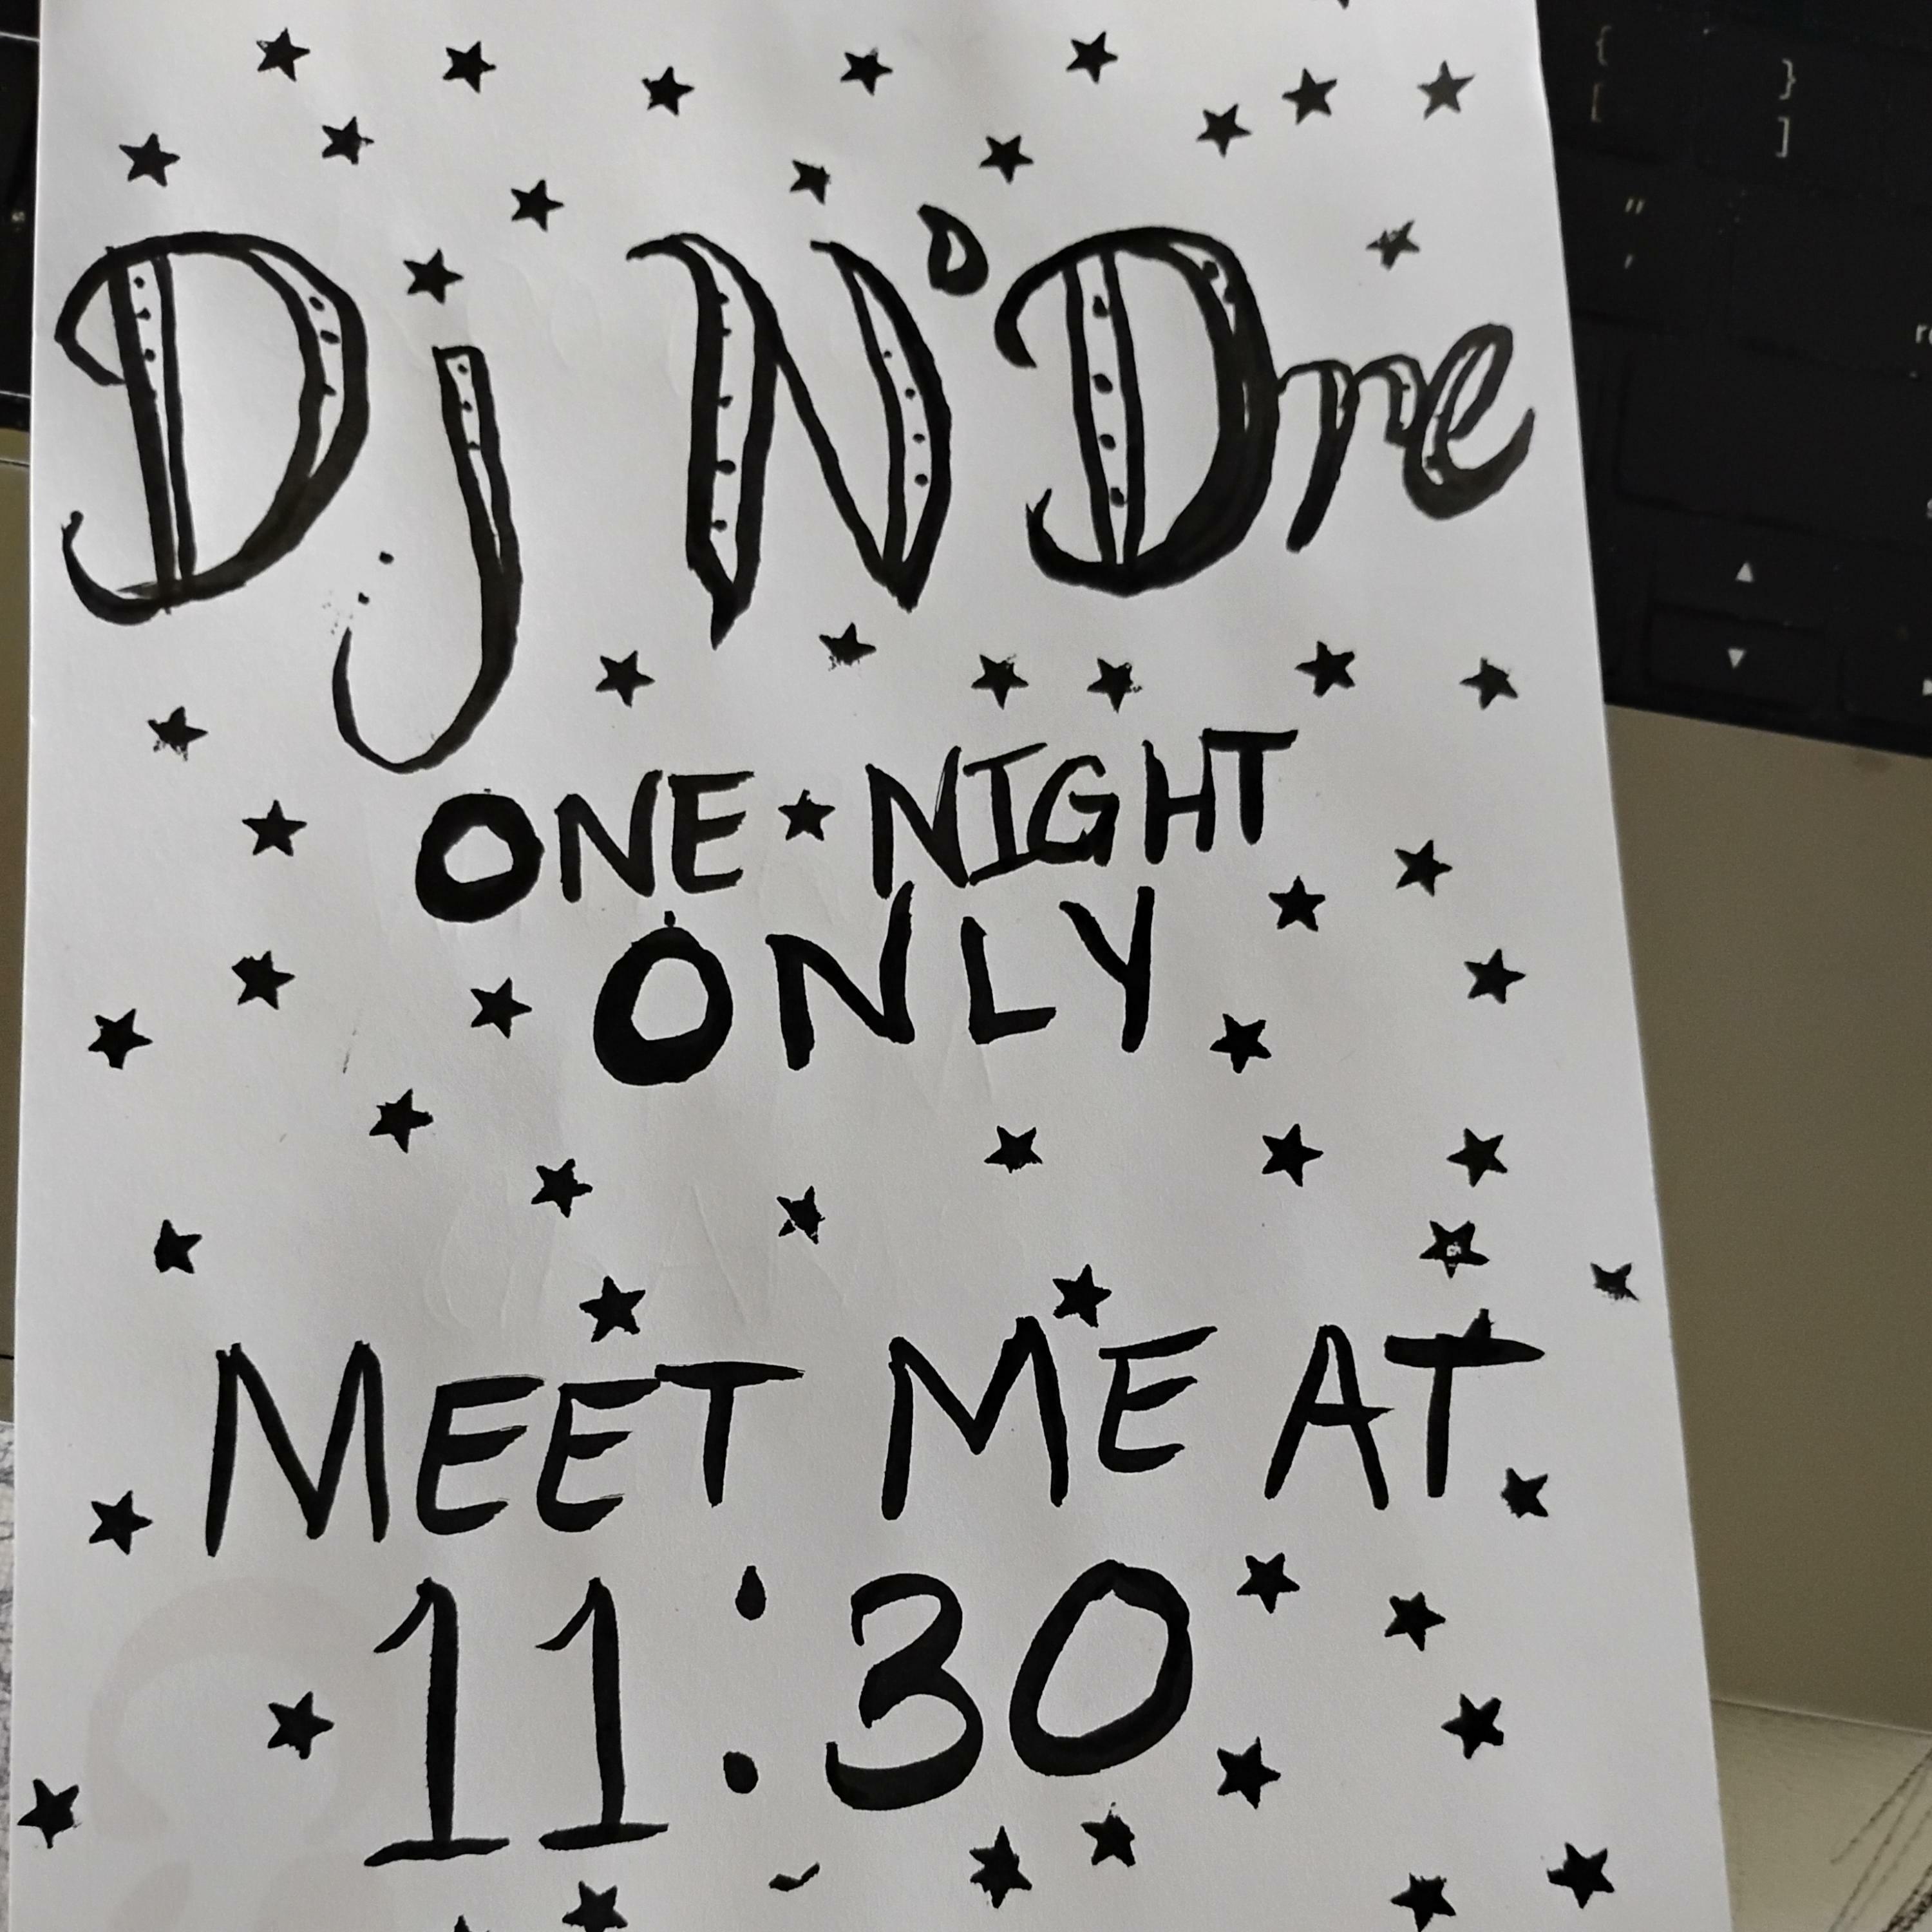 Dj N'Dre
ONE NIGHT
ONLY
MEET ME AT
11:30